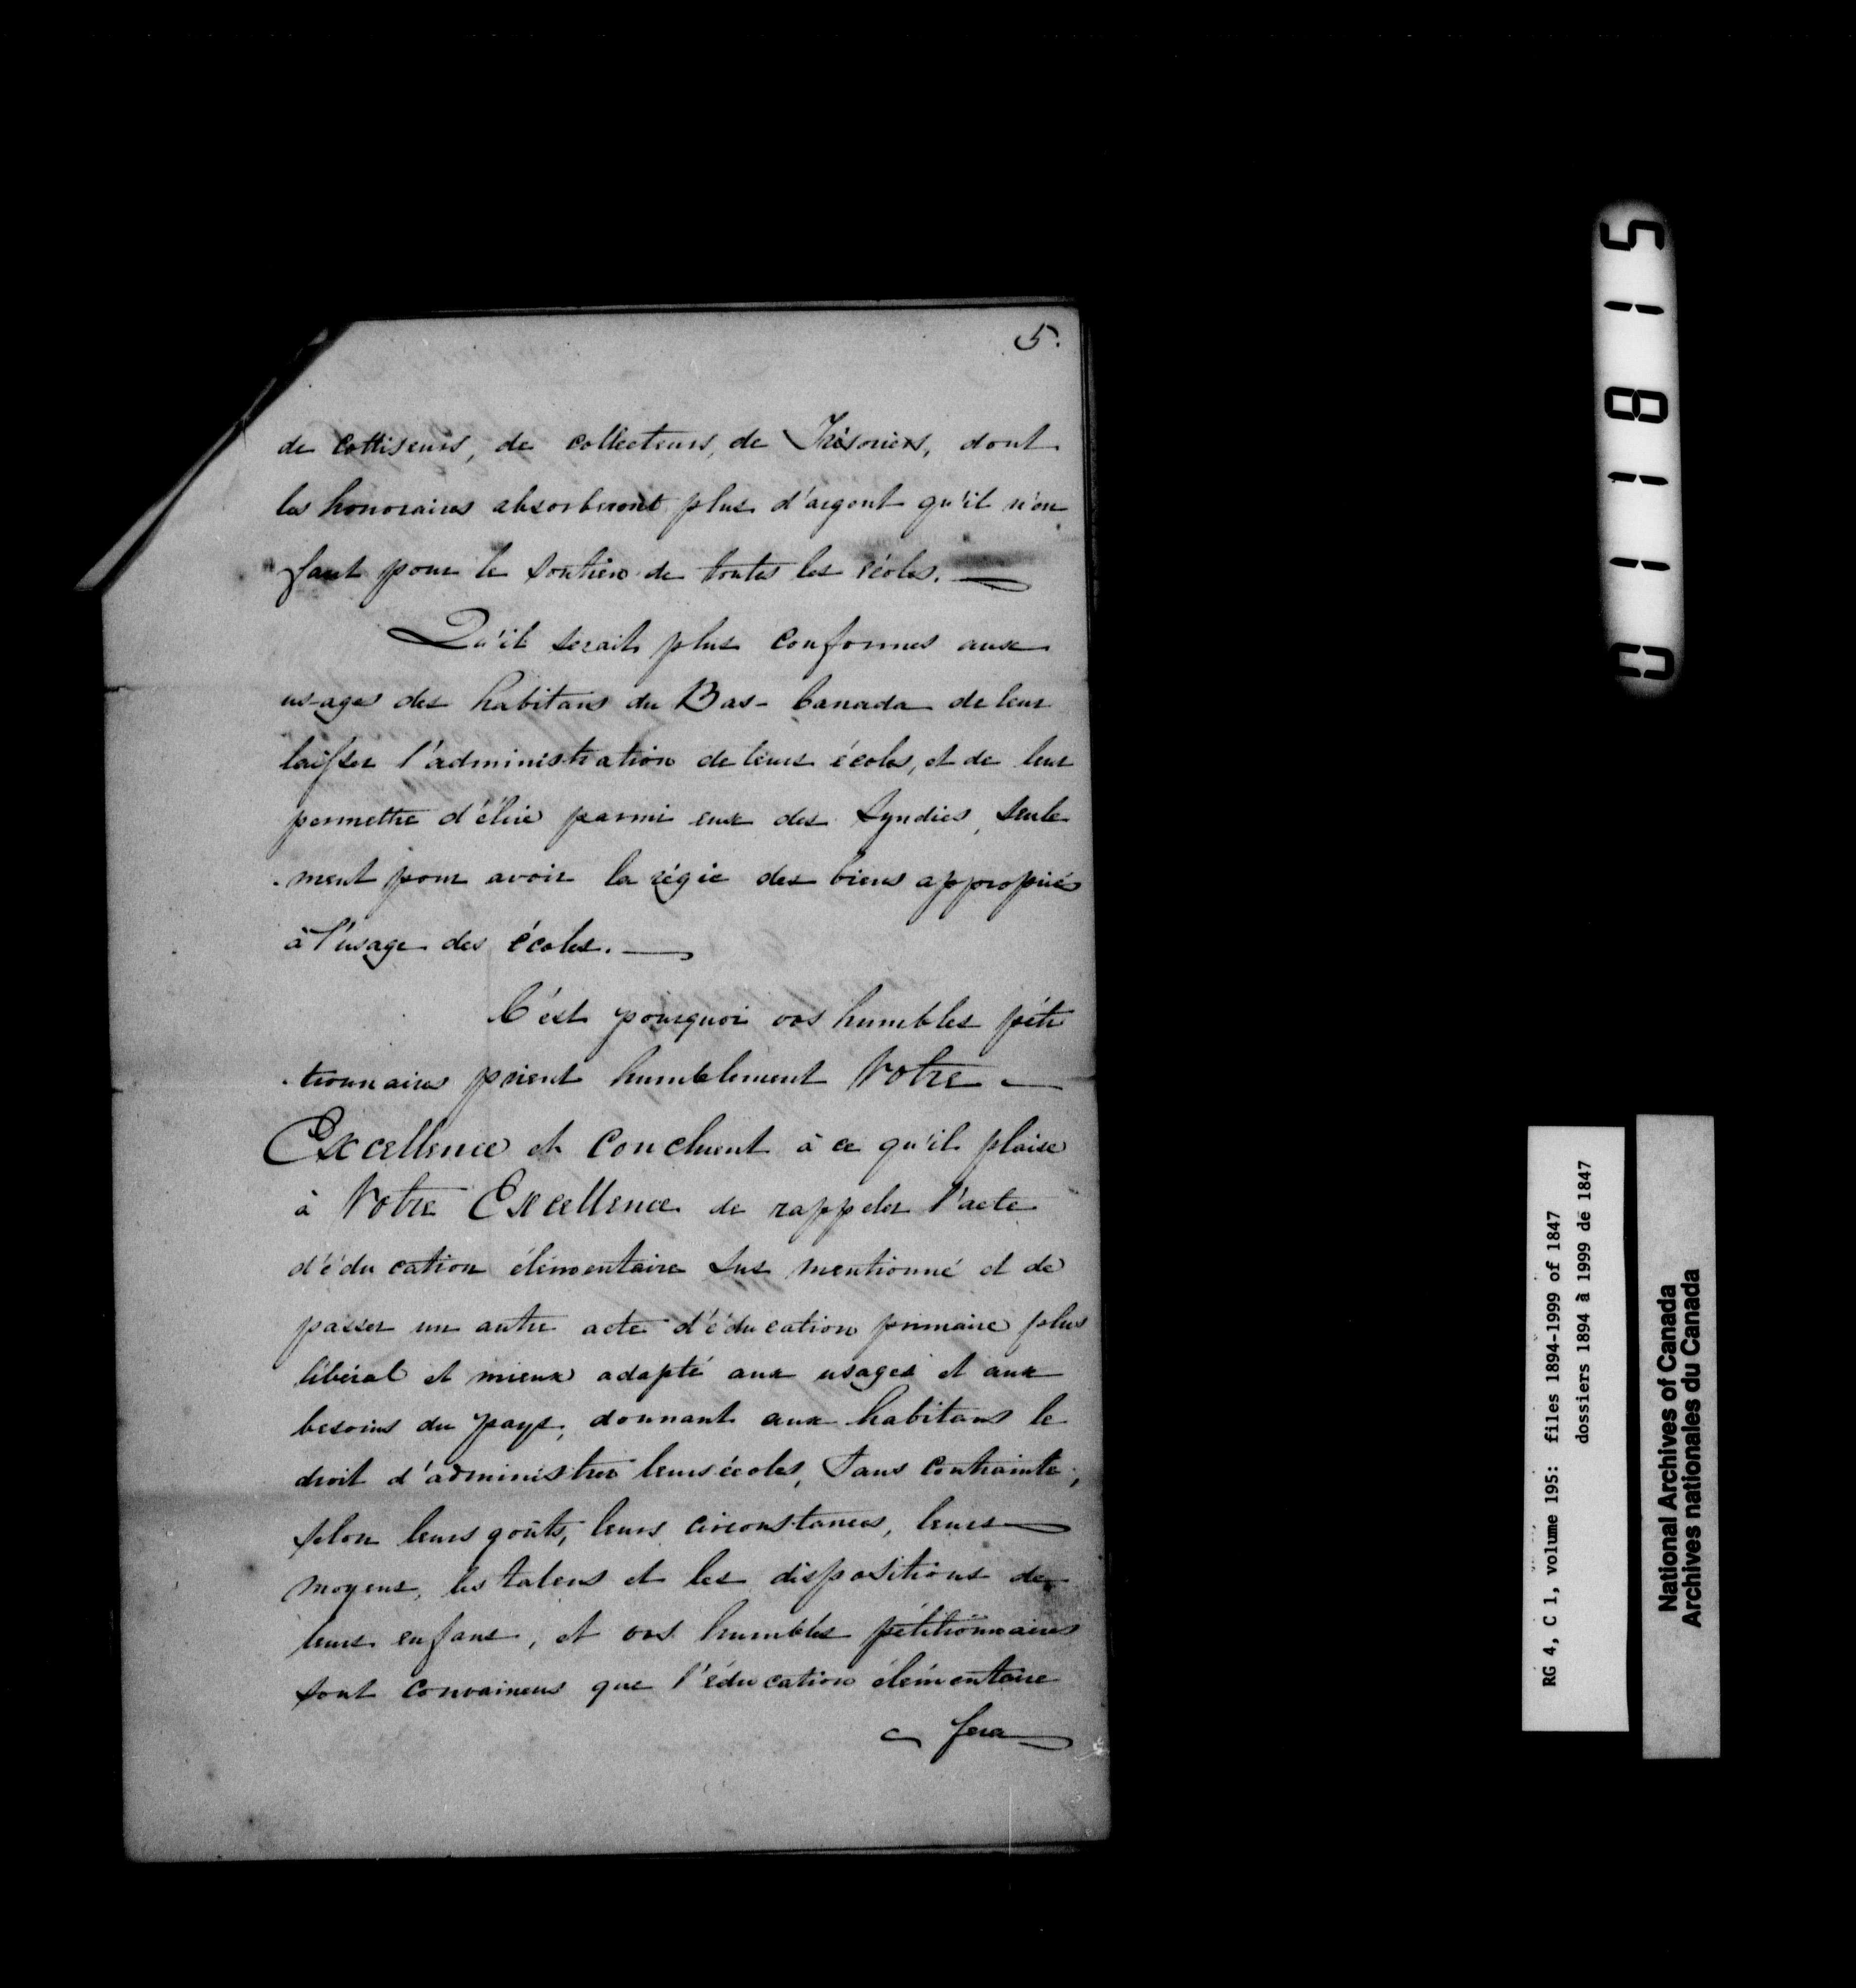 5.
de cottiseurs, de collecteurs, de Trésoriers, dont
les honoraires absorberont plus d'argent qu'il n'en
faut pour le soutien de toutes les écoles.
Qu'il serait plus conformes aux
usages des habitans du Bas-Canada de leur
laisser l'administration de leurs écoles, et de leur
permettre d'élire parmi eux des Syndics, seule
-ment pour avoir la régie des biens appropriés
à l'usage des écoles.
C'est pourquoi vos humbles péti
-tionnaires prient humblement Votre
Excellence et concluent à ce qu'il plaise
à Votre Excellence de rappeler l'acte
d'éducation élémentaire sus mentionné et de
passer un autre acte d'éducation primaire plus
libéral et mieux adapté aux usages et aux
besoins du pays, donnant aux habitans le
droit d'administrer leurs écoles, sans contrainte,
selon leurs goûts, leurs circonstances, leurs
moyens, les talens et les dispositions de
leurs enfans, et vos humbles pétitionnaires
sont convaincus que l'éducation élémentaire
fera
011815
RG 4, C 1, volume 195: files 1894-1999 of 1847
dossiers 1894 à 1999 de 1847
National Archives of Canada
Archives nationales du Canada